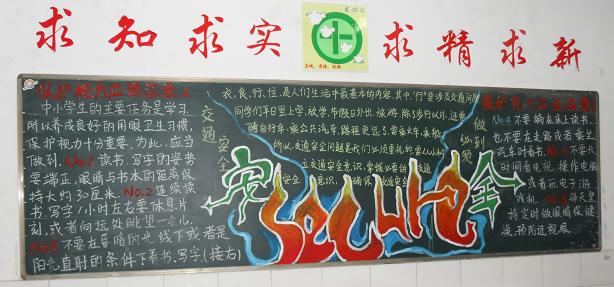 求知求实 求精求新
保护视力应该注意:
中小学生的主要任务是学习
所以养成良好的用眼卫生习惯,
保护视力十分重要,为此,应当
做到:No.1读书、写字的姿势
要端正,眼睛与书本的距离保
持大约30厘米 No.2连续读
书、写字1小时左右要休息片
刻,或者向远处眺望一会儿.
No.3不要在昏暗的光线下或者是
阳光直射的条件下看书、写字(接右)
衣、食、行、住,是人们生活中最基本的内容,其中"行"要涉及交通问题
同学们平日里上学,放学,节假日外出,旅游,除了步行以外,还要
骑自行车,乘公共汽车,路程更远了,要乘火车,乘船
所以,交通安全问题是我们必须重视
交通安全
做到必须
安
security
全
No.4不要躺在床上读书,
也不要在走路或者乘坐
汽车时看书.
长时间看电视、操作电脑
或者玩电子游
戏机.
持定时做眼睛保健
操,预防近视眼